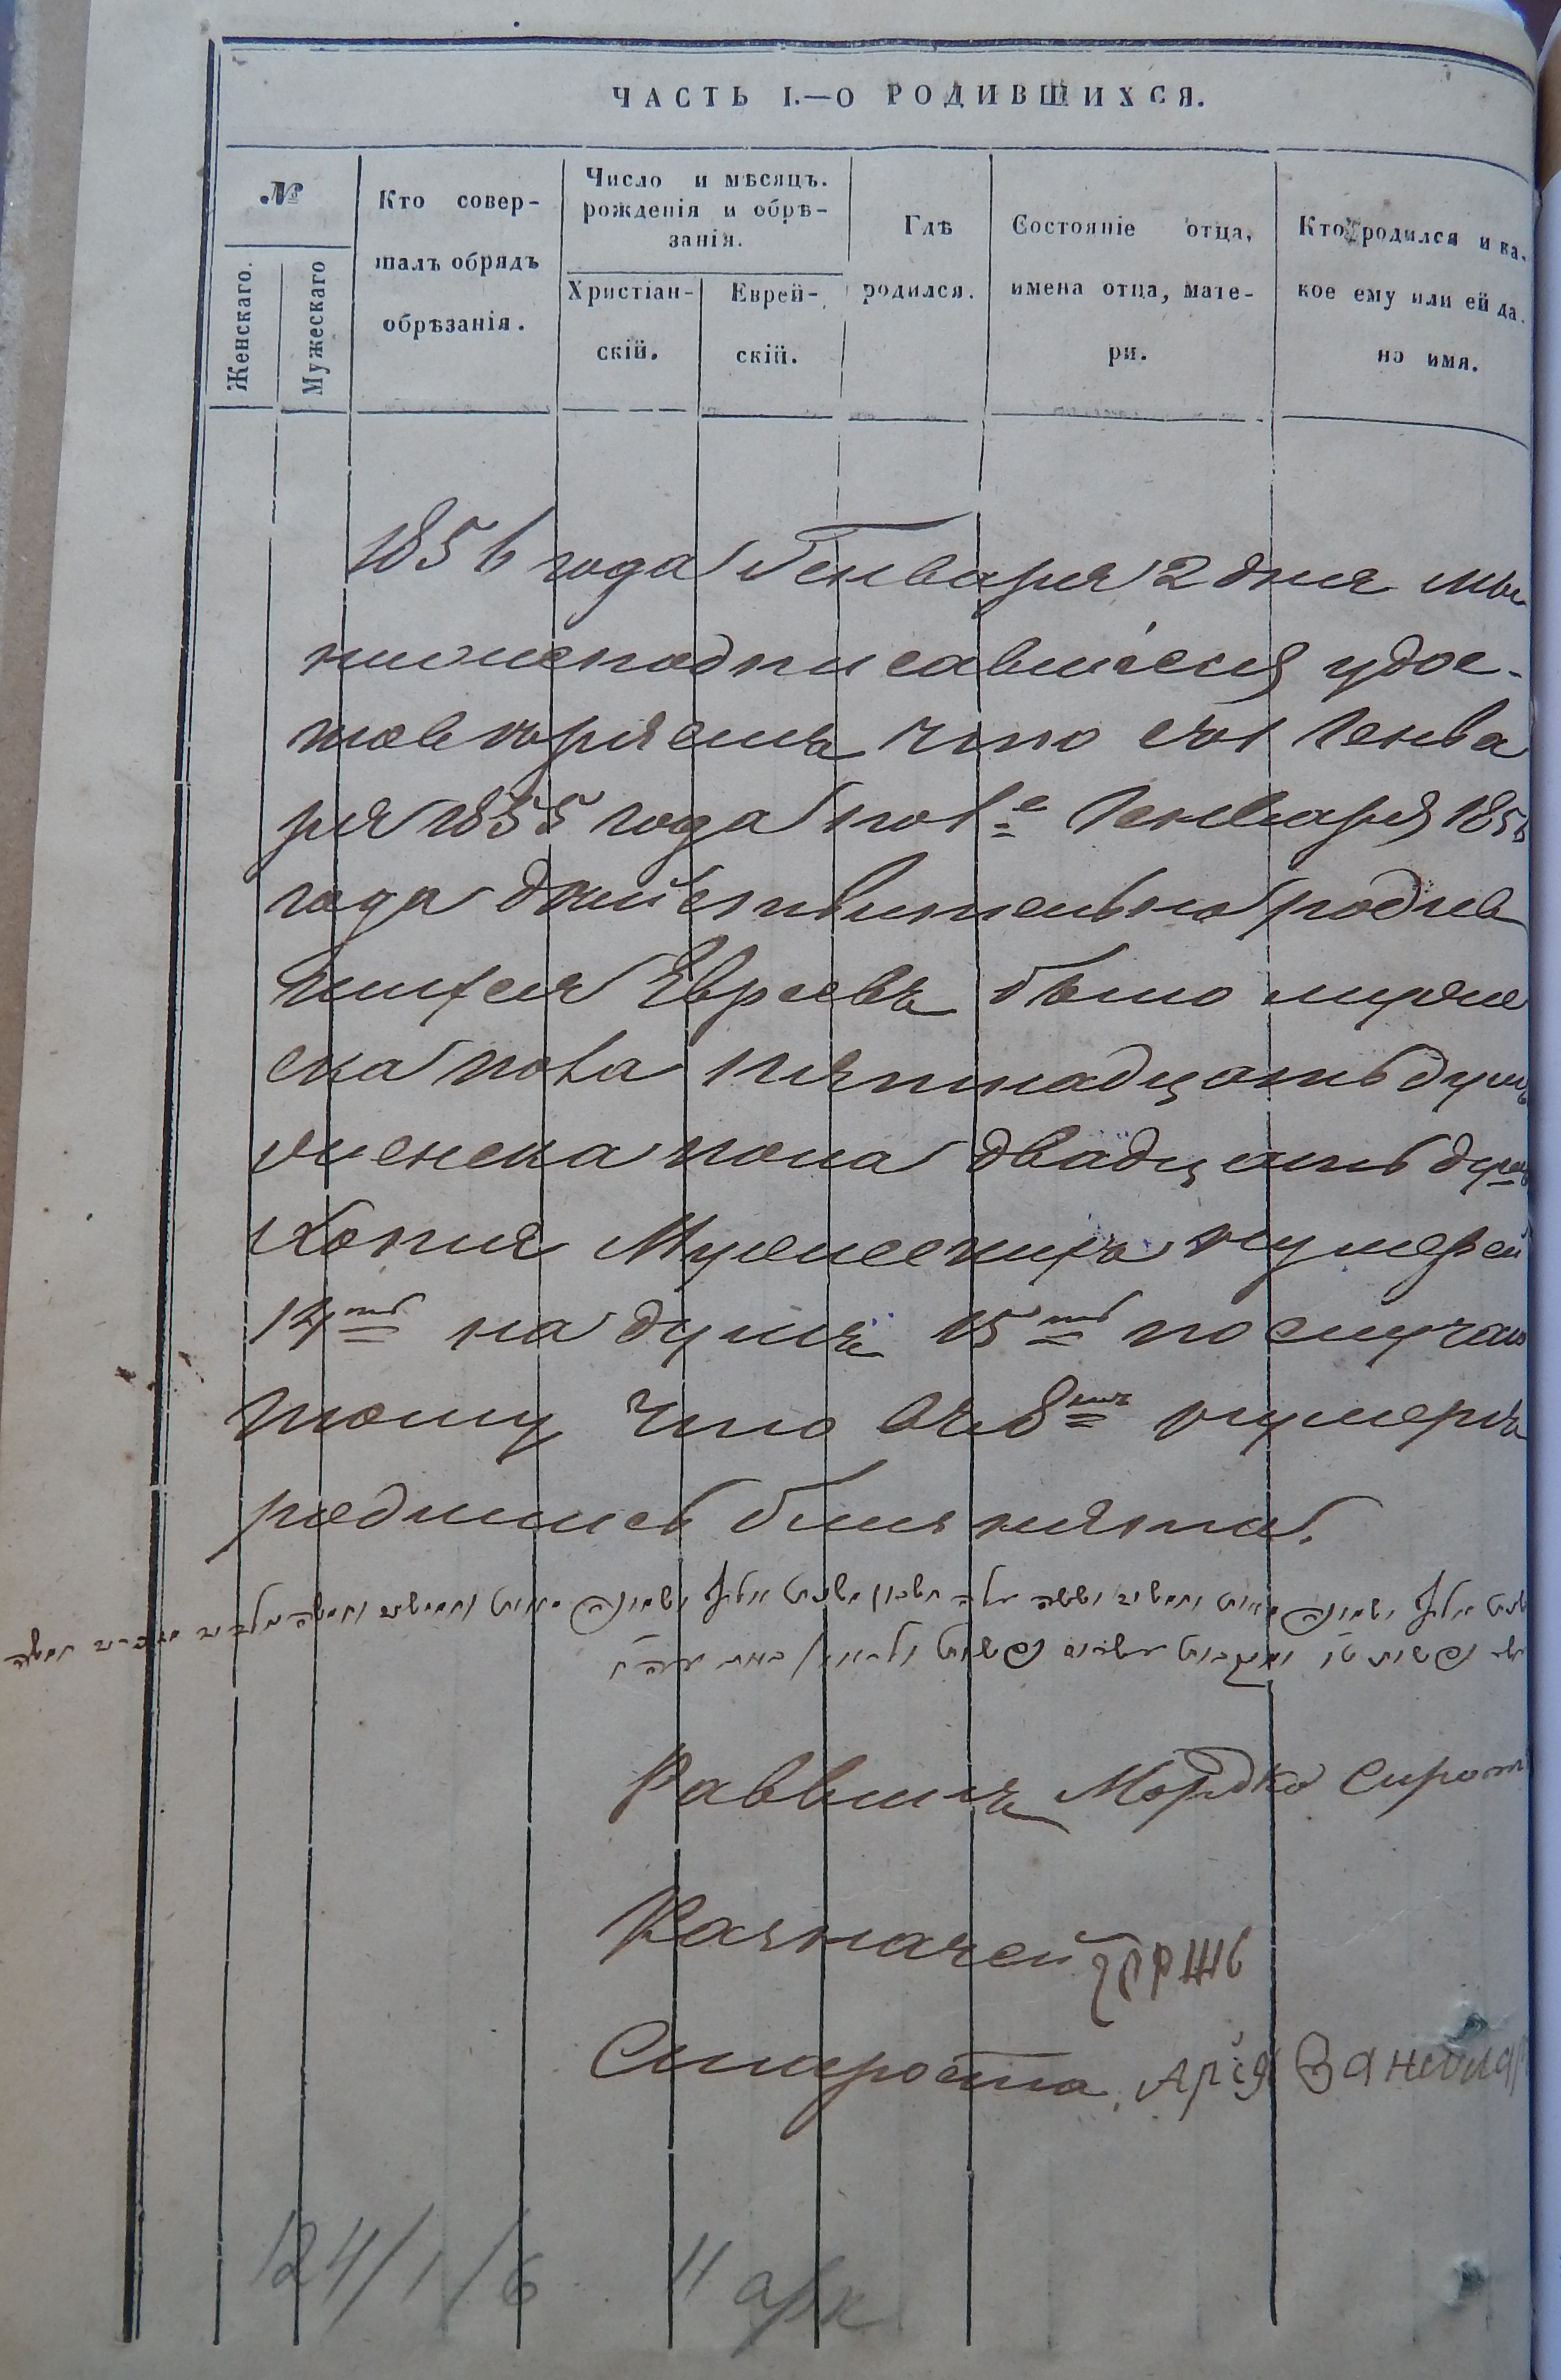 ЧАСТЬ I.—О РОДИВШИХСЯ.
№
Женскаго.
Мужескаго
Кто совер-
шалъ обрядъ
обрѣзанія.
Число и мѣсяцъ.
рожденія и обрѣ-
занія.
Христіан-
скій.
Еврей-
скій.
Гдѣ
родился.
Состояніе отца,
имена отца, мате-
ри.
Кто родился и ка-
кое ему или ей да-
но имя.
1856 года Генваря 2 дня мы
нижеподписавшіеся удос-
товѣряемъ что съ 1 Генва
ря 1855 года по 1е Генваря 1856
года дѣйствительно родив
шихся Евреевъ было мужес
ска пола пятнадцать душъ
женска пола двадцать душъ
Хотя Мужескихъ нумерей
14ть на душъ 15ть по случаю
тому что въ 8мъ нумерѣ
родились близнята.
Раввинъ Мордко Сирот
Казначей
Староста
124/1/6 11 арк